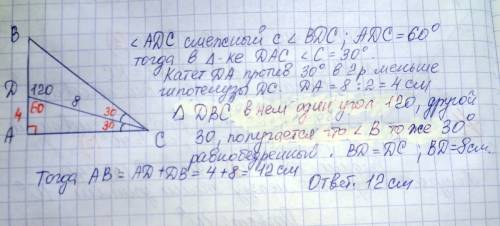 B
D
A
C
120
60
4
8
30
30
∠ADC смежный с ∠BDC; ADC = 60°
тогда в Δ-ке DAC ∠C = 30°
Катет DA против 30° в 2р меньше
гипотенузы DC. DA = 8 : 2 = 4 см
Δ DBC в нем один угол 120, другой
30, получается что ∠B тоже 30°
равнобедренный, BD = DC; BD = 8см.
Тогда AB = AD + DB = 4 + 8 = 12 см
Ответ. 12 см